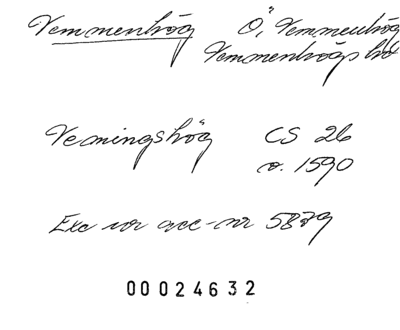 Vemmenhög Ö, Vemmenhög
Vemmenhögs hd
Vemingshög CS 26
o. 1590
Exc ur acc-nr 5879
00024632